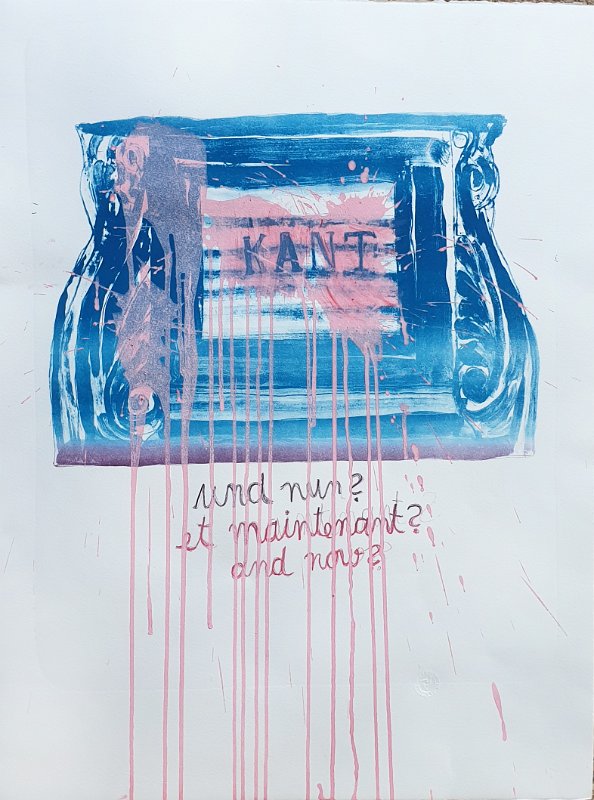 KANT
und nun?
et maintenant?
and now?